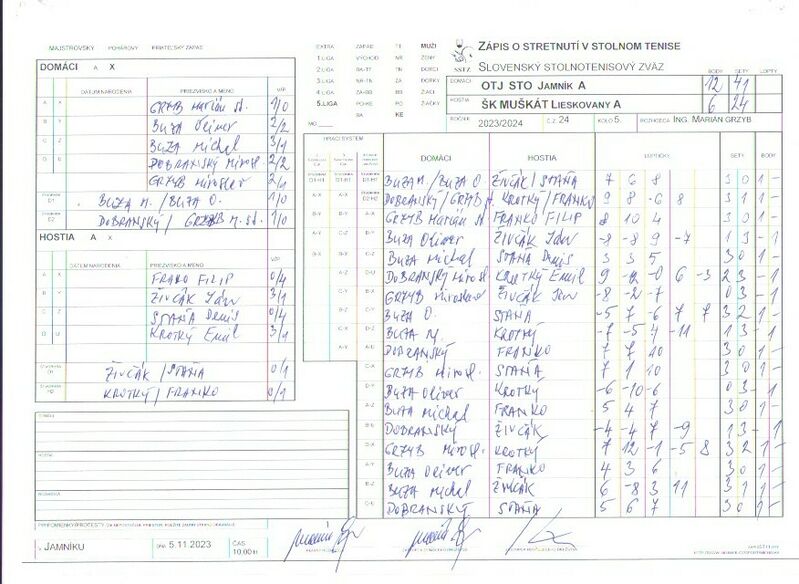 MAJSTROVSKÝ POHÁROVÝ PRIATEĽSKÝ ZÁPAS
DOMÁCI A X
DÁTUM NARODENIA PRIEZVISKO A MENO
A X GRZYB Marián st. 1/0
B Y BUZA Oliver 2/2
C Z BUZA Michal 3/1
D U DOBRANSKÝ Mirosl. 2/2
GRZYB Miroslav 2/1
D1 BUZA M. / BUZA O. 1/0
D2 DOBRANSKÝ / GRZYB M. st. 1/0
HOSTIA A X
DÁTUM NARODENIA PRIEZVISKO A MENO
A X FRANKO FILIP 0/4
B Y ŽIVČÁK Ján 3/1
C Z STAŇA Denis 0/4
D U KROTKÝ Emil 3/1
ŽIVČÁK / STAŇA 0/1
KROTKÝ / FRANKO 0/1
JAMNÍKU DŇA 5.11.2023 ČAS 10.00 hr
EXTRA ZÁPAD TI MUŽI
1.LIGA VÝCHOD NR ŽENY
2.LIGA BA-TT TN DORCI
3.LIGA NR-TN ZA DORKY
4.LIGA ZA-BB BB ŽIACI
5.LIGA PO-KE PO ŽIAČKY
BA KE
SSTZ
ZÁPIS O STRETNUTÍ V STOLNOM TENISE
SLOVENSKÝ STOLNOTENISOVÝ ZVÄZ
BODY SETY LOPTY
DOMÁCI OTJ STO JAMNÍK A 12 41
HOSTIA ŠK MUŠKÁT LIESKOVANY A 6 24
ROČNÍK 2023/2024 Č.Z. 24 KOLO 5. ROZHODCA ING. MARIÁN GRZYB
HRACÍ SYSTÉM DOMÁCI HOSTIA LOPTIČKY SETY BODY
BUZA M / BUZA O ŽIVČÁK / STAŇA 7 6 8 3 0 1 -
DOBRANSKÝ / GRZYB st. KROTKÝ / FRANKO 9 8 -6 8 3 1 1 -
GRZYB Marián st FRANKO FILIP 8 10 4 3 0 1 -
BUZA Oliver ŽIVČÁK Ján -8 -8 9 -7 1 3 - 1
BUZA Michal STAŇA Denis 3 3 5 3 0 1 -
DOBRANSKÝ Mirosl. KROTKÝ Emil 9 -2 -0 6 -3 2 3 - 1
GRZYB Miroslav ŽIVČÁK Ján -8 -2 -7 0 3 - 1
BUZA O. STAŇA -5 7 -6 7 7 3 2 1 -
BUZA M. KROTKÝ -7 -5 4 -11 1 3 - 1
DOBRANSKÝ FRANKO 7 7 10 3 0 1 -
GRZYB Mirosl. STAŇA 7 1 10 3 0 1 -
BUZA Oliver KROTKÝ -6 -10 -6 0 3 - 1
BUZA Michal FRANKO 5 4 7 3 0 1 -
DOBRANSKÝ ŽIVČÁK -4 -4 7 -9 1 3 - 1
GRZYB Mirosl. KROTKÝ 7 12 -1 -5 8 3 2 1 -
BUZA Oliver FRANKO 4 3 6 3 0 1 -
BUZA Michal ŽIVČÁK 6 -8 3 11 3 1 1 -
DOBRANSKÝ STAŇA 5 6 7 3 0 1 -